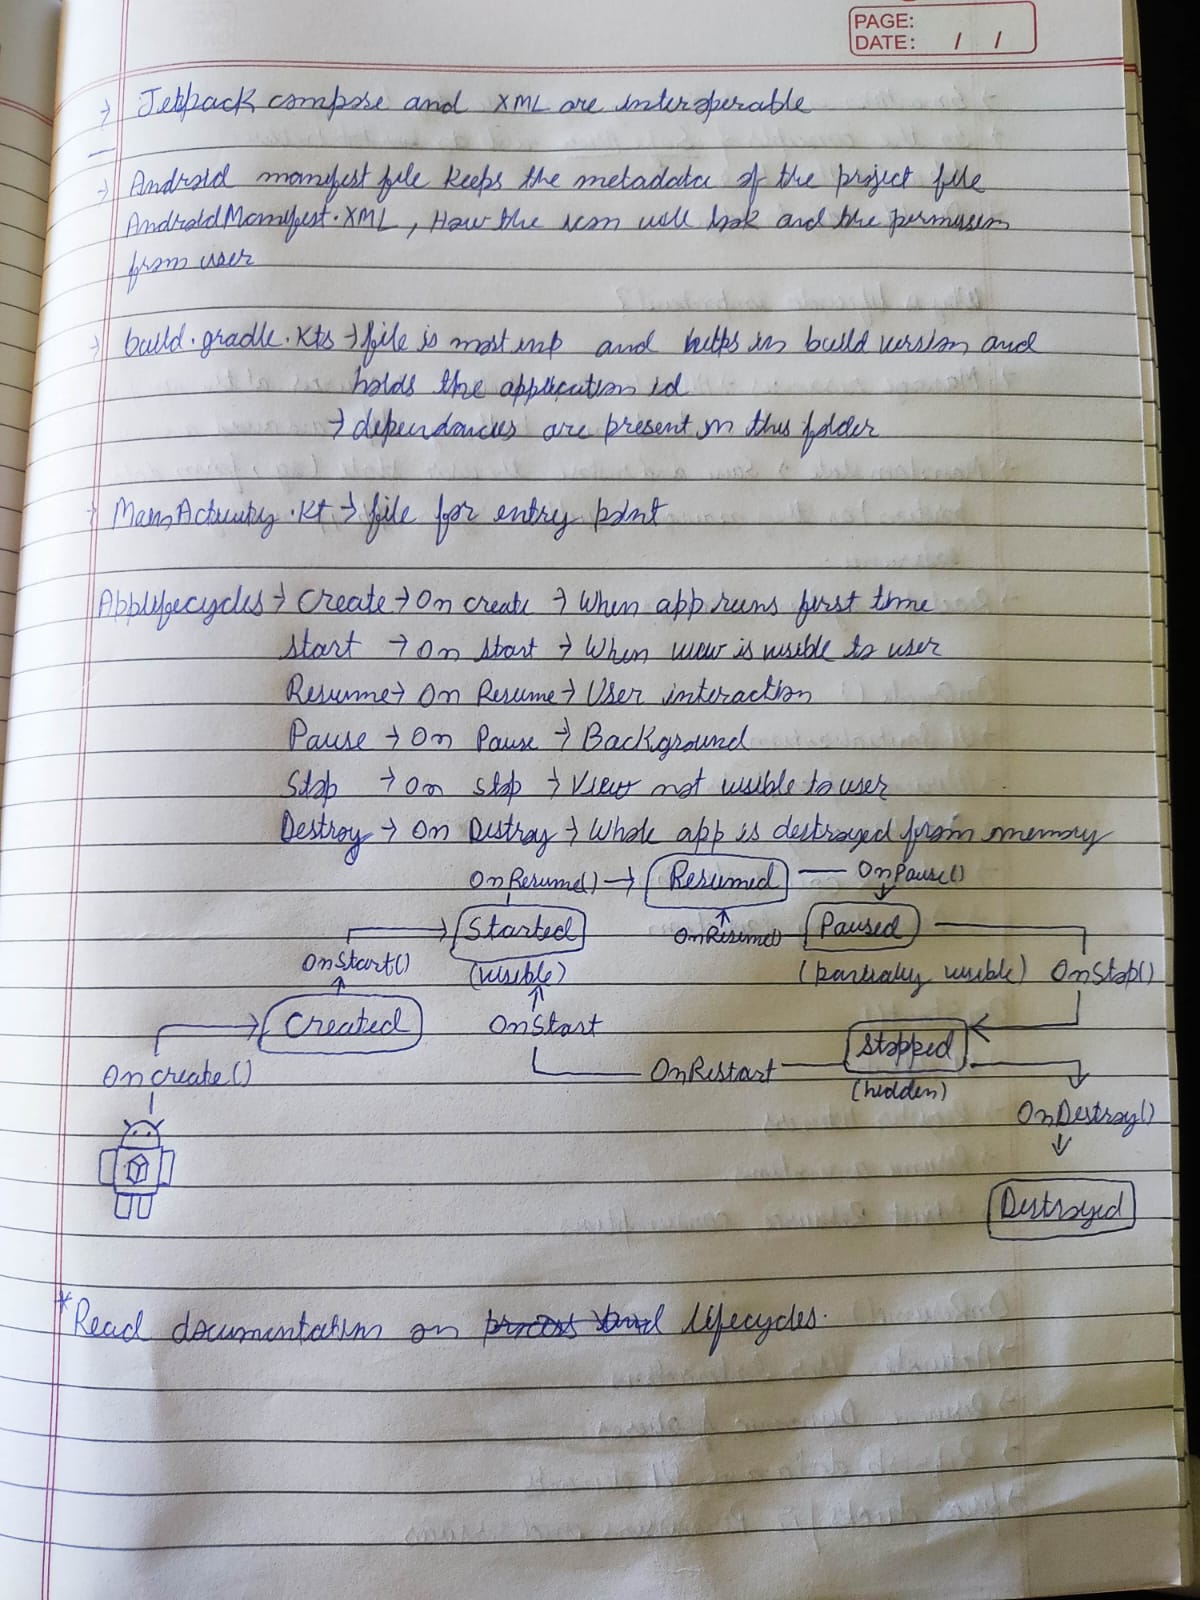 PAGE:
DATE: / /
→ Jetpack compose and XML are interoperable
→ Android manifest file keeps the metadata of the project file
AndroidManifest.XML, How the icon will look and the permission
from user
→ build.gradle.kts → file is most imp and helps in build version and
holds the application id
→ dependancies are present in this folder
→ MainActivity.kt → file for entry point
Applifecycles → Create → On create → When app runs first time
Start → On Start → When view is visible to user
Resume → On Resume → User interaction
Pause → On Pause → Background
Stop → On Stop → View not visible to user
Destroy → On Destroy → Whole app is destroyed from memory
OnResume() → Resumed — OnPause()
Started OnResume() Paused
OnStart() (visible) (partially visible) OnStop()
Created OnStart Stopped
On create() OnRestart (hidden)
OnDestroy()
Destroyed
*Read documentation on lifecycles.